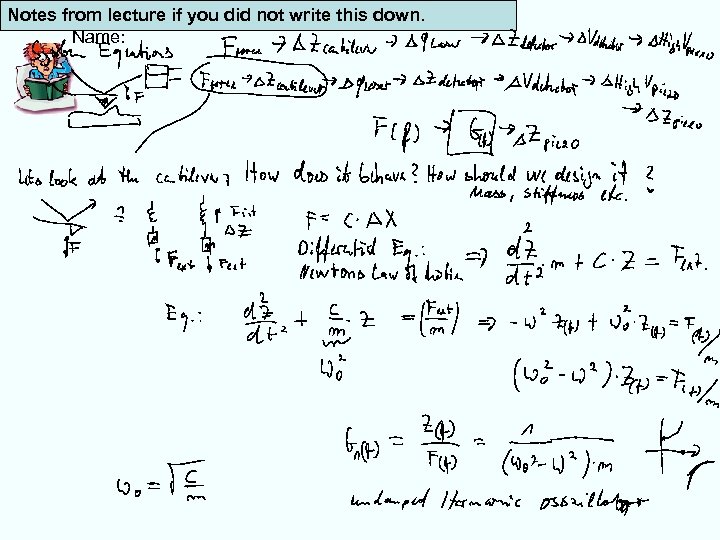 Notes from lecture if you did not write this down.
Name:
from Equations
F_force → ΔZ cantilever → Δφ Laser → ΔZ detector → ΔV detector → ΔHigh V piezo
F_force → ΔZ cantilever → Δφ Laser → ΔZ detector → ΔV detector → ΔHigh V piezo
→ ΔZ piezo
F
F(f) → G(f) → ΔZ piezo
Lets look at the cantilever, How does it behave? How should we design it ?
Mass, stiffness etc.
F ≙ F_ext F_int ΔZ F_ext F = C · ΔX
Differential Eq.: ⇒ d²Z/dt² · m + C · Z = F_ext
Newtons Law of Motion
Eq.: d²Z/dt² + C/m · Z = (F_ext/m) ⇒ -ω² Z(f) + ω₀² · Z(f) = F(f)/m
ω₀² (ω₀² - ω²) · Z(f) = F(f)/m
G(f) = Z(f)/F(f) = 1/((ω₀² - ω²) · m)
ω₀ = √(C/m)
undamped Harmonic ossillator